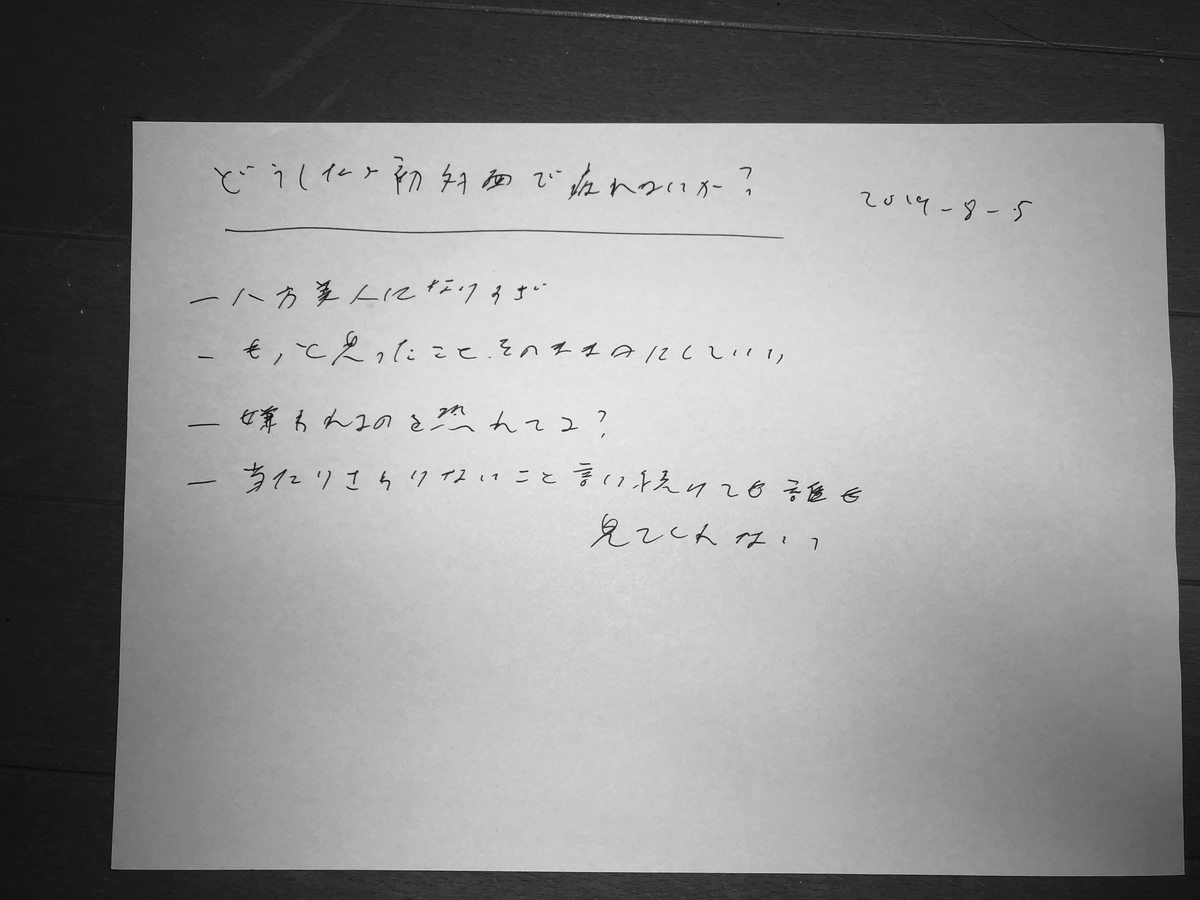 どうしたら初対面で疲れないか?
2019-8-5
– 八方美人になりすぎ
– もっと思ったことそのまま口にしていい
– 嫌われるのを恐れてる?
– 当たりさわりないこと言い続けても誰も
見てくれない